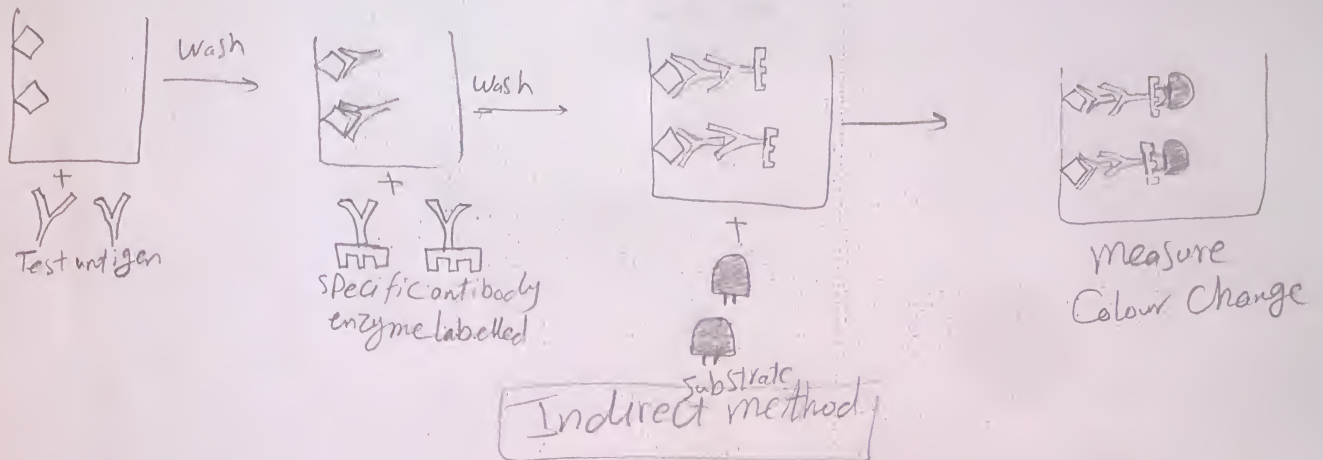 Wash
Wash
+
Test antigen
+
Specific antibody
enzyme labelled
+
Substrate
Measure
Colour Change
Indirect method